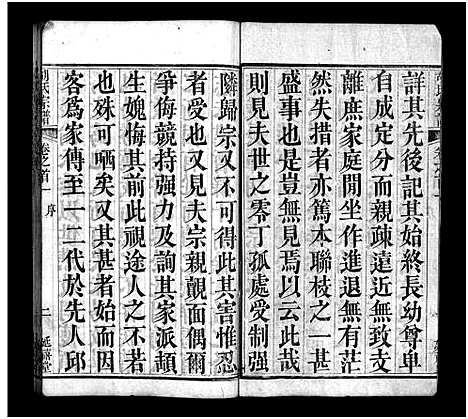 詳其先後記其始終長幼尊卑
自成定分而親疎遠近無致支
離庶家庭閒坐作進退無有茫
然失措者亦篤本聯枝之一甚
盛事也是豈無見焉以云此哉
則見夫世之零丁孤處受制强
隣歸宗又不可得此其害惟忍
者受也又見夫宗親覿面偶爾
爭侮競持强力及詢其家派頓
生媿悔其前此視途人之不若
也殊可哂矣又其甚者始而因
客爲家傳至一二代於先人邱
胡氏宗譜 卷之首 序 二 延禧堂